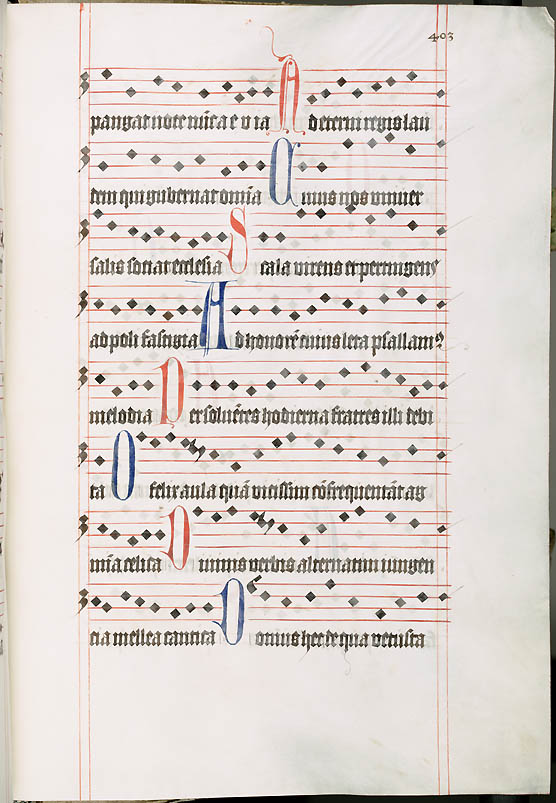 403
A deterni regis lau
dem qui gubernat om̄ia Cuius nos vniuer
salis sociat ecclesia Scala nitens et pertingens
ad poli fastigia Ad honorē cuius leta psallam9
melodia Persoluētes hodierna fratres illi debi
ta O felix aula quā vicissim cōfrequentāt ag
mīa celica Diuinis verbis alternatim iungen
cia mellea cantica Domus hec de qua vetusta